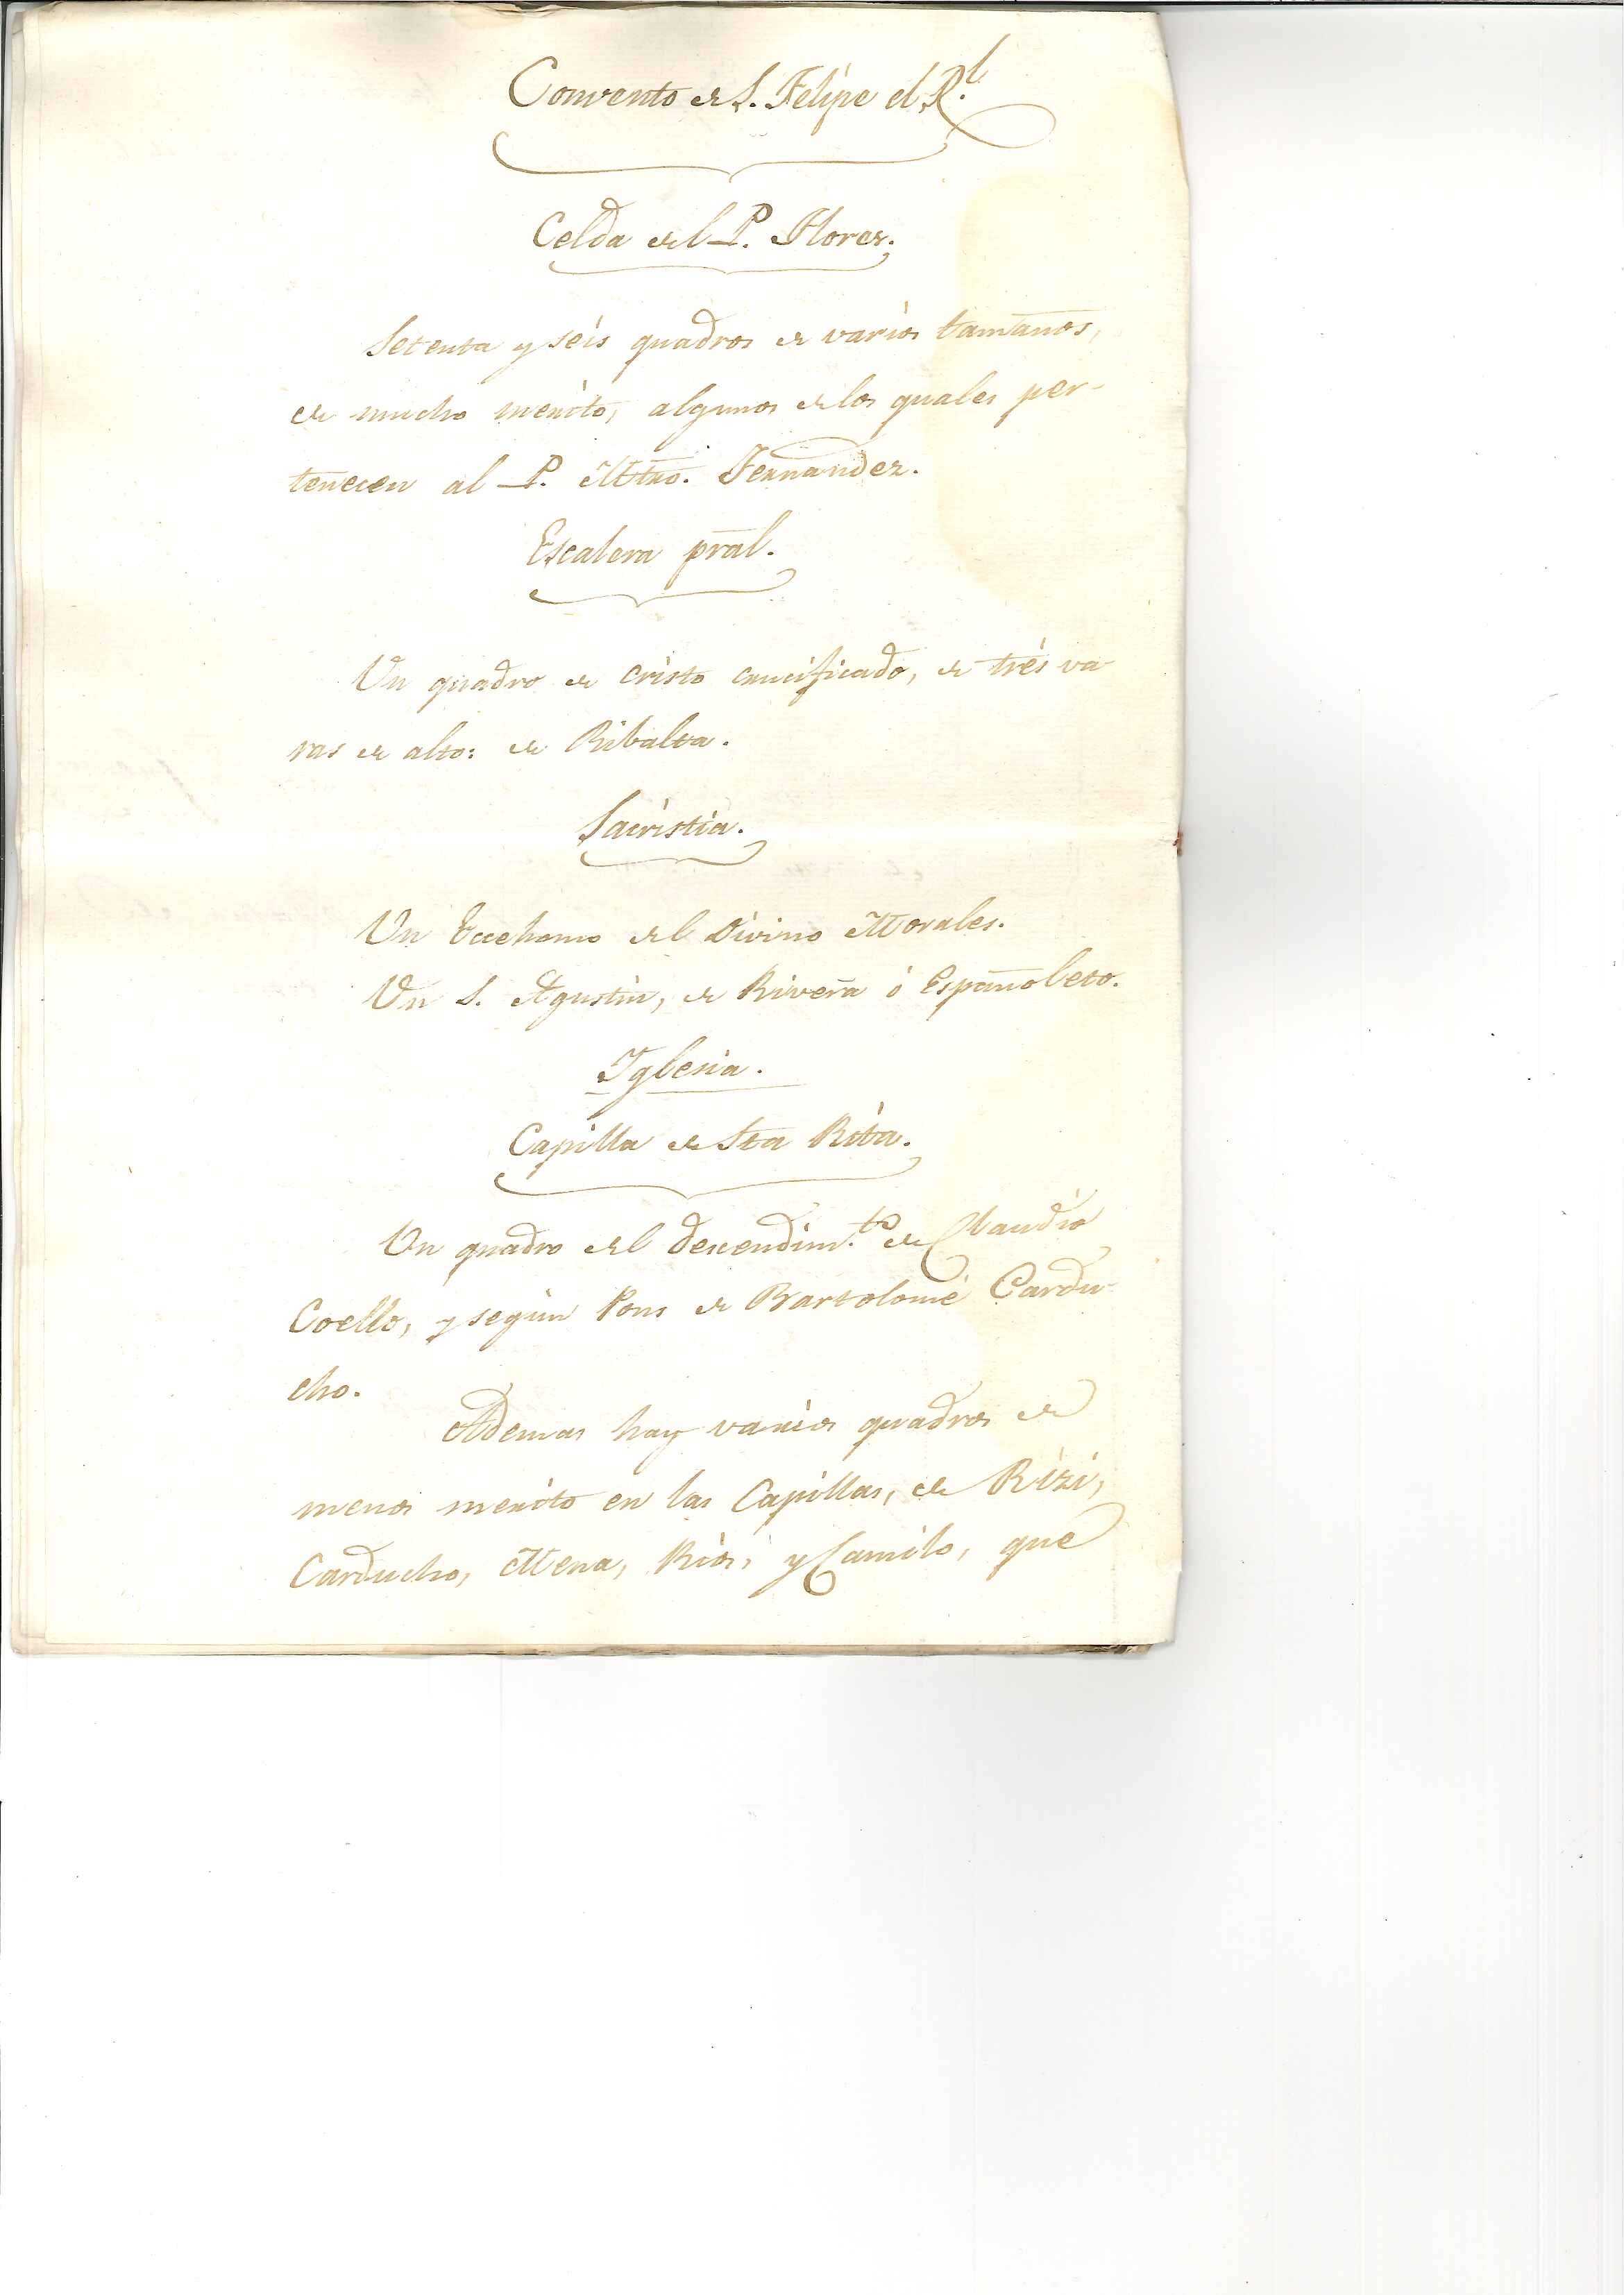 Convento de S. Felipe el R.l
Celda del P. Florez.
Setenta y seis quadros de varios tamaños,
de mucho merito, algunos de los quales per-
tenecen al P. Mtro. Fernandez.
Escalera pral.
Un quadro de Cristo crucificado, de trés va
ras de alto: de Ribalta.
Sacristia.
Un Eccehomo del Divino Morales.
Un S. Agustin, de Rivera ó Españoleto.
Iglesia.
Capilla de Sta Rita.
Un quadro del descendim.to de Claudio
Coello, y según Pons de Bartolomé Cardu-
cho.
Ademas hay varios quadros de
menos merito en las Capillas, de Rizi,
Carducho, Mena, Rios, y Camilo, que